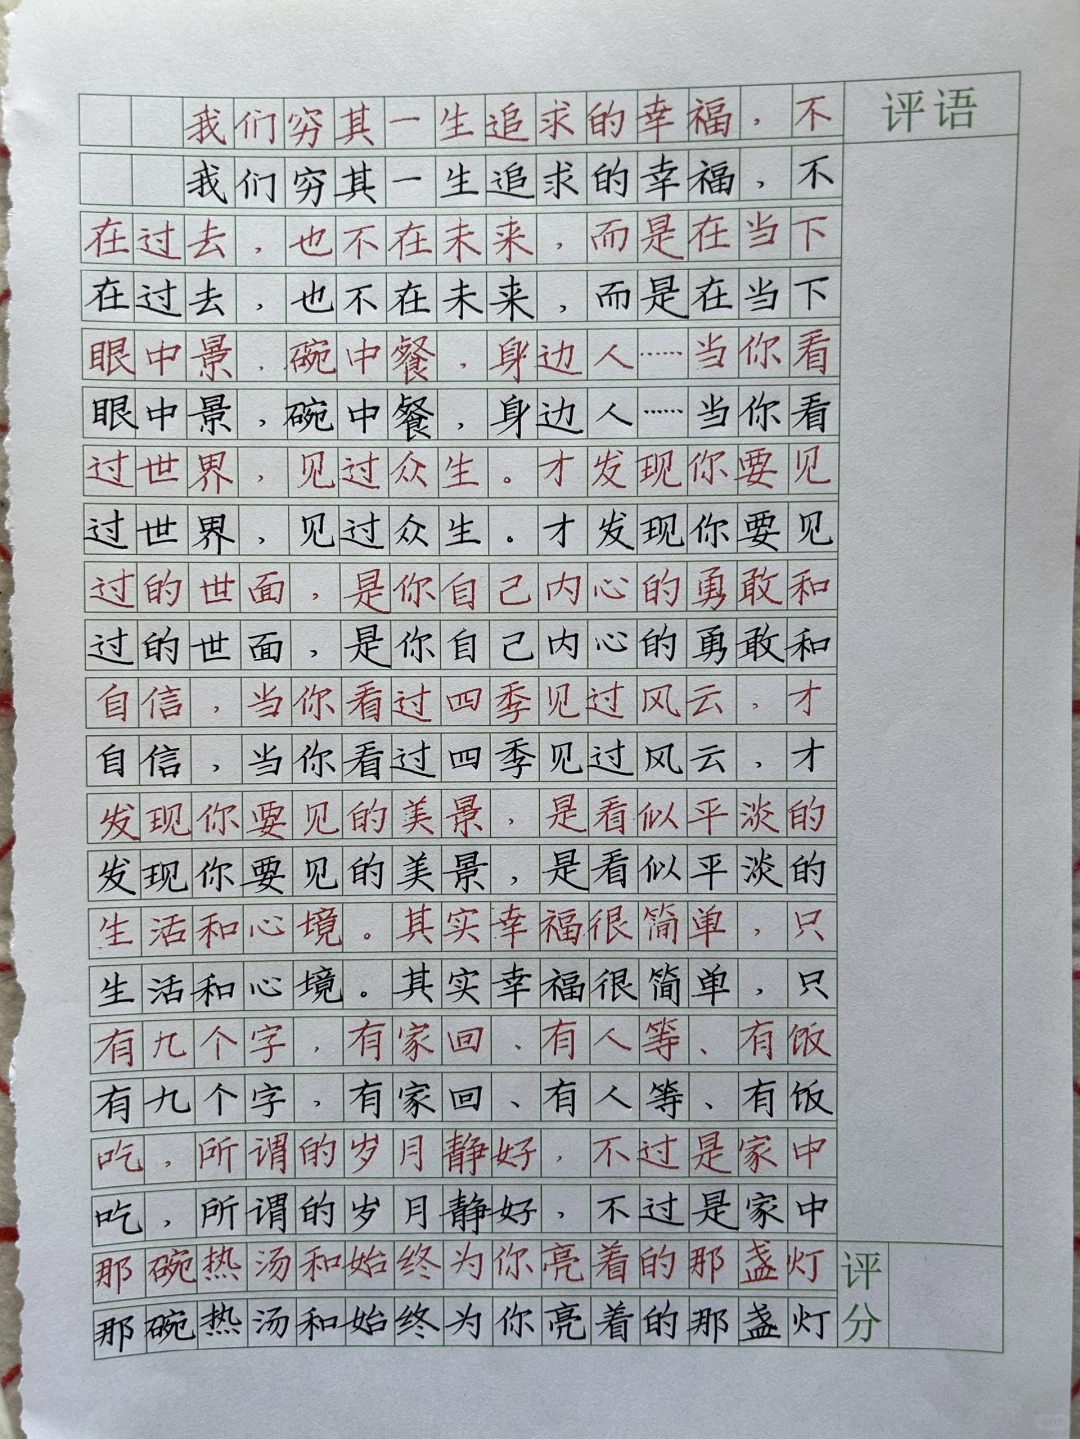 我们穷其一生追求的幸福，不
评语
我们穷其一生追求的幸福，不
在过去，也不在未来，而是在当下
在过去，也不在未来，而是在当下
眼中景，碗中餐，身边人……当你看
眼中景，碗中餐，身边人……当你看
过世界，见过众生。才发现你要见
过世界，见过众生。才发现你要见
过的世面，是你自己内心的勇敢和
过的世面，是你自己内心的勇敢和
自信，当你看过四季见过风云，才
自信，当你看过四季见过风云，才
发现你要见的美景，是看似平淡的
发现你要见的美景，是看似平淡的
生活和心境。其实幸福很简单，只
生活和心境。其实幸福很简单，只
有九个字，有家回、有人等、有饭
有九个字，有家回、有人等、有饭
吃，所谓的岁月静好，不过是家中
吃，所谓的岁月静好，不过是家中
那碗热汤和始终为你亮着的那盏灯
那碗热汤和始终为你亮着的那盏灯
评分